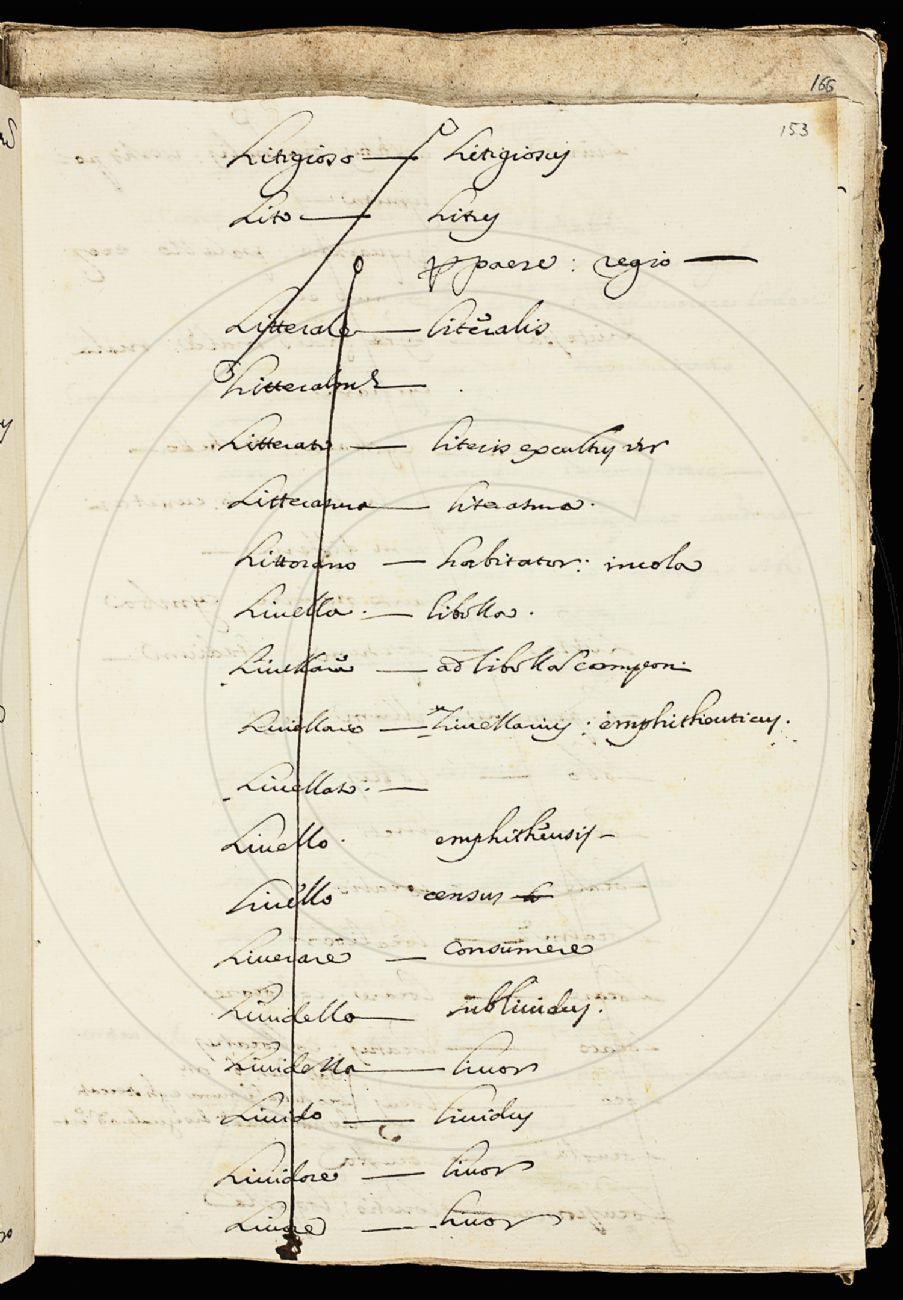 166
153
Litigioso — Litigiosus
Lito — Litus
paese : regio —
Litterale — literalis
Litteralm.te —
Litterato — literis excultus vir
Litteratura — literatura.
Littorano — habitator: incola
Liuella. — libella.
Liuellare — ad libella
Liuellario — liuellarius : emphitheuticus.
Liuellato. —
Liuello. emphitheusis —
Liuello census
Liuerare — consumere
Liuidetto — subliuidus.
Liuidezza — liuor
Liuido — liuidus
Liuidore — liuor
Liuore — liuor